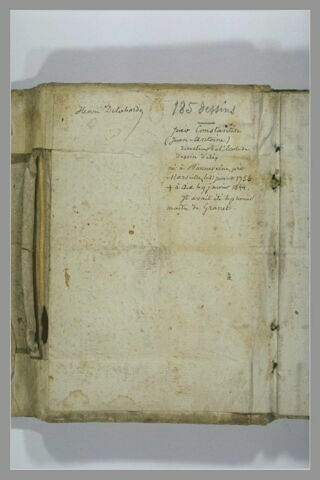 Henri Delaborde
185 dessins
par Constantin
(Jean-Antoine)
directeur de l'école de
dessin d'Aix
né à Marseille, près
Marseille 1756
† à Aix le 9 janvier 1844.
Il avait été le premier
maître de Granet.